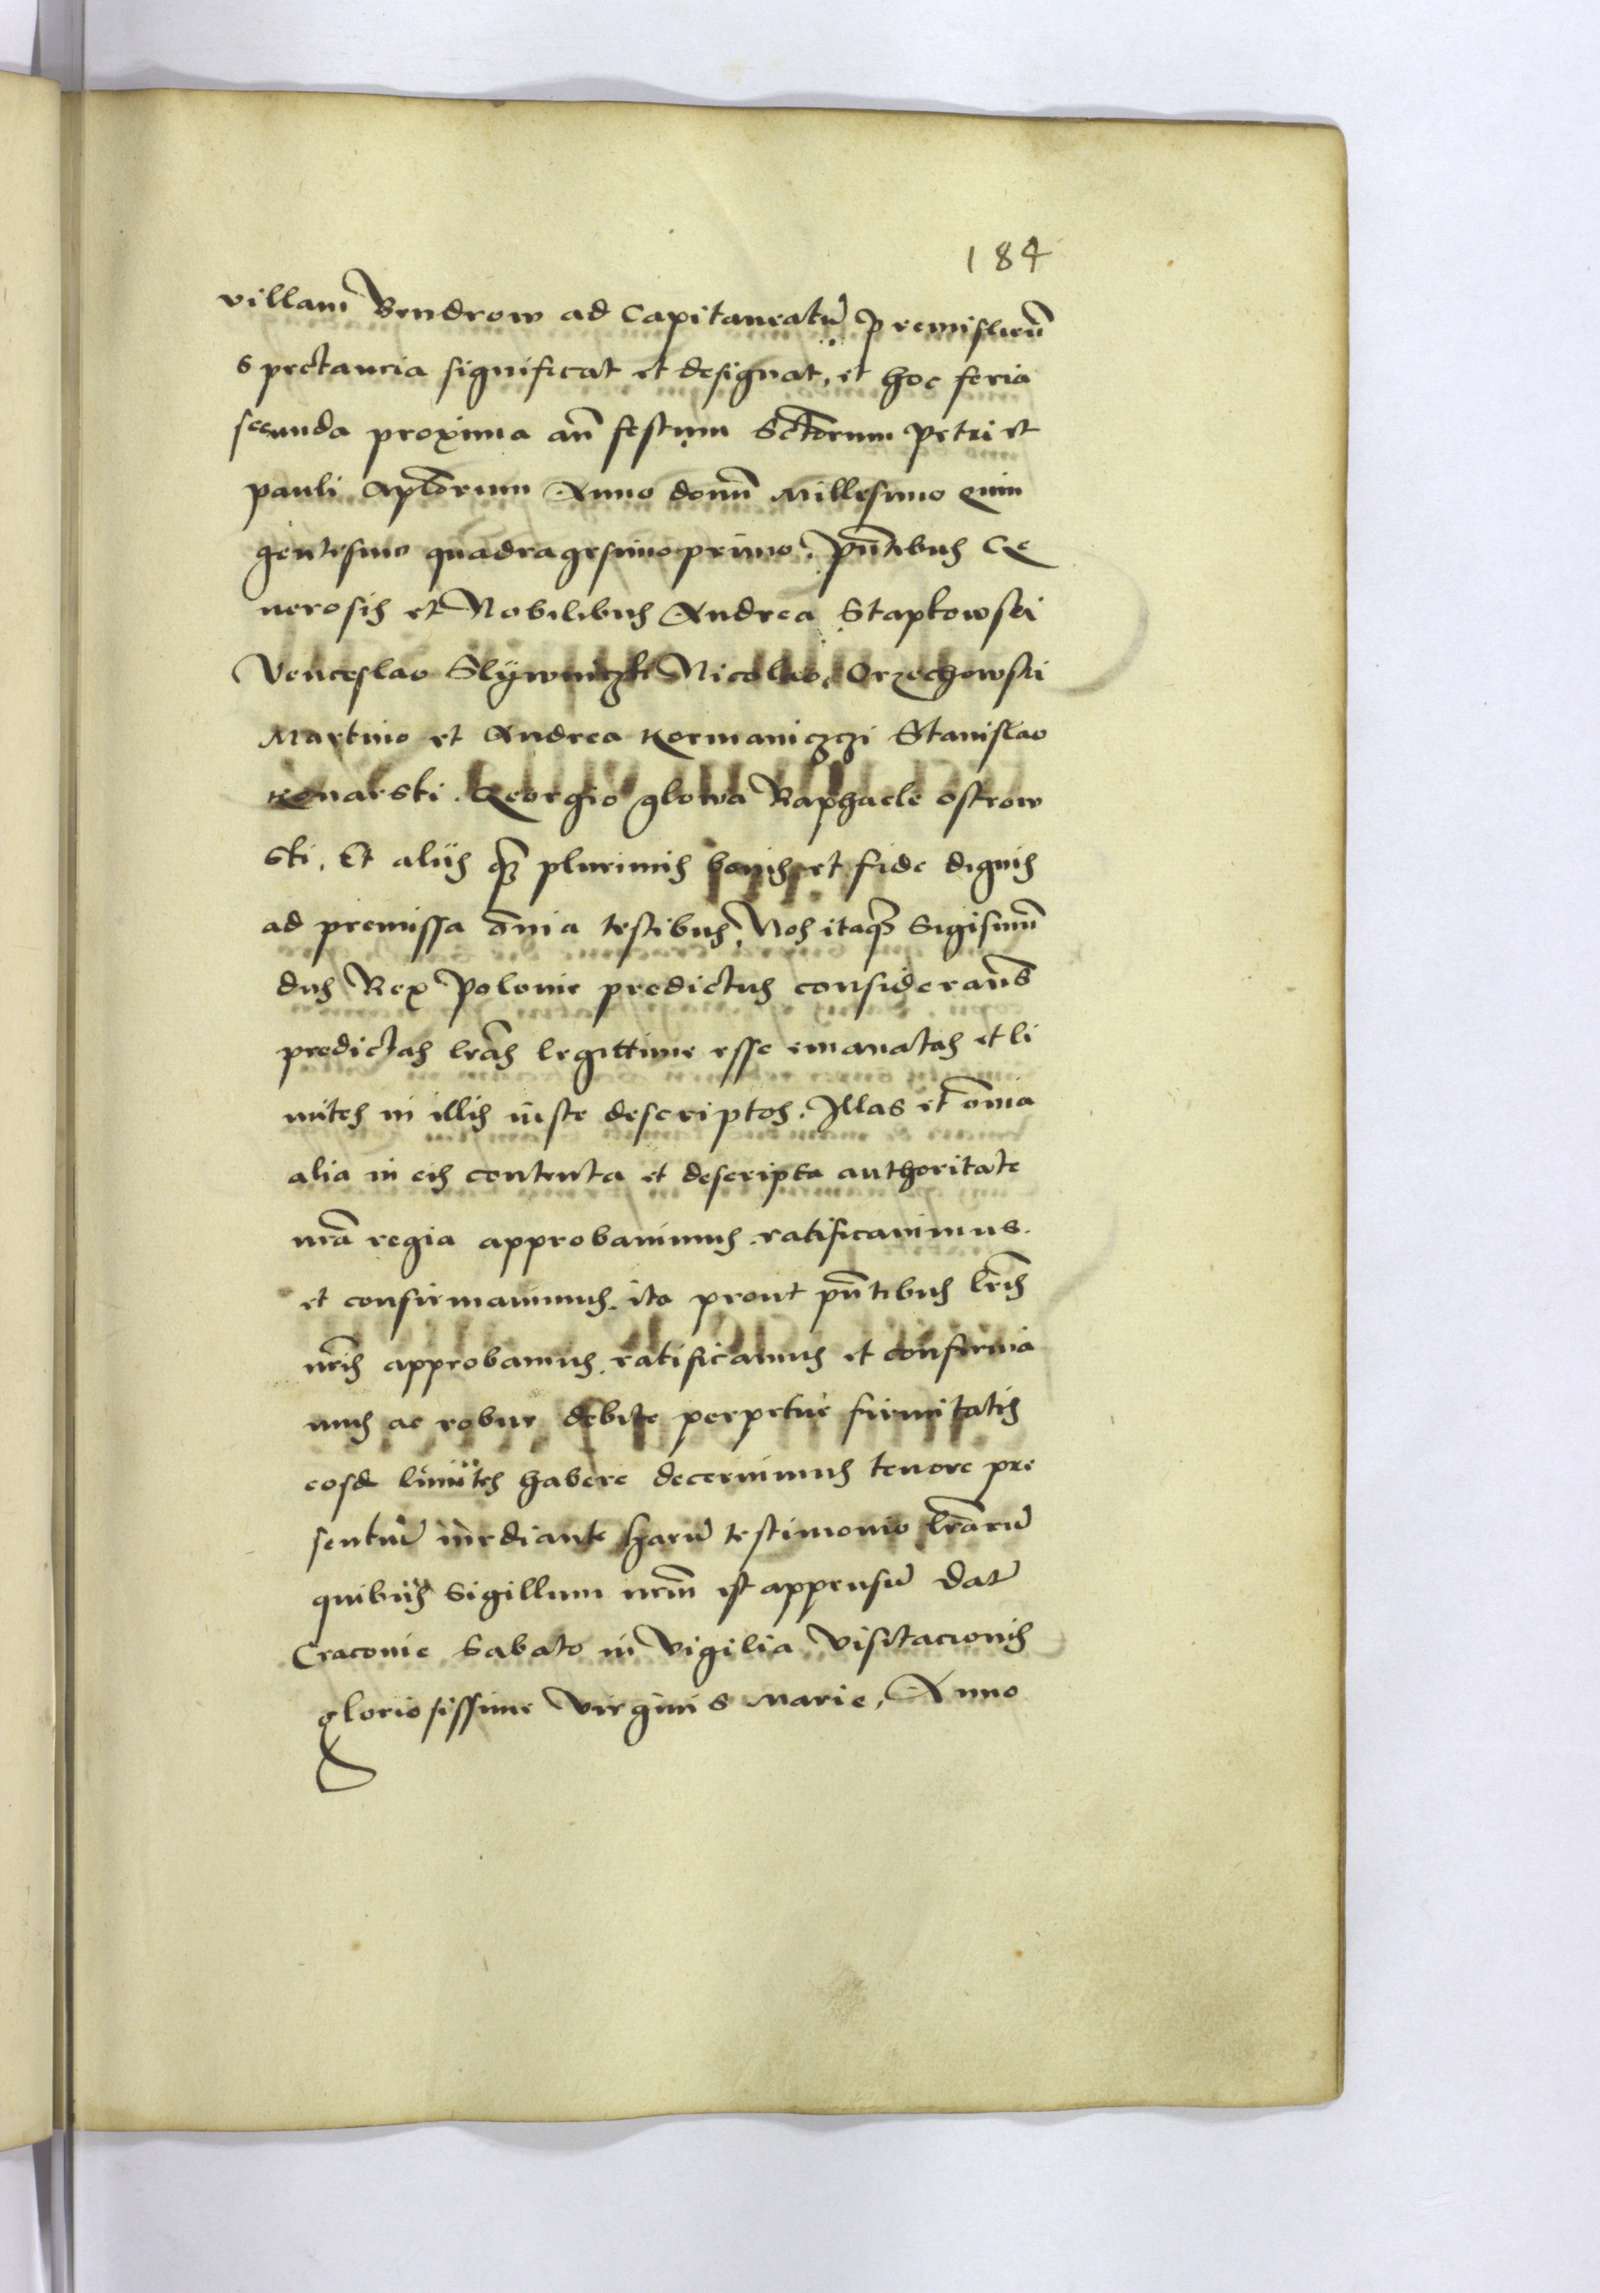 184
villam Bendrow ad Capitaneatū premisliēn
spectancia significat et designat, et hoc feria
secunda proxima an̄ festum Sctōrum petri et
pauli Aptōrum Anno domīn Millesimo quin
gentesimo quadragesimoprimo. Pn̄tibus Ge
nerosis et Nobilibus Andrea Stapkowski
Venceslao Slÿwniczki Nicolao Orzechowski
Martino et Andrea Kormaniczczi Stanislao
Konarski. Georgio glowa Raphaele ostrow
ski. Et aliis qz̄ plurimis bonis et fide dignis
ad premissa om̄ia testibus, Nos itaqz̄ Sigismūn
dus Rex Polonie predictus considerans
predictas lrās legittime esse emanatas et li
mites in illis iuste descriptos. Illas et om̄ia
alia in eis contenta et descripta authoritate
nrā regia approbauimus ratificauimus.
et confirmauimus. ita prout pn̄tibus lrīs
nrīs approbamus. ratificamus et confirma
mus ac robur debite perpetue firmitatis
eosd limites habere decernimus tenore pre
sentiū mediante harū testimonio lrārū
quibus Sigillum nrm̄ est appensū Datū
Cracouie Sabato in Vigilia Visitacionis
gloriosissime Virginis Marie, Anno